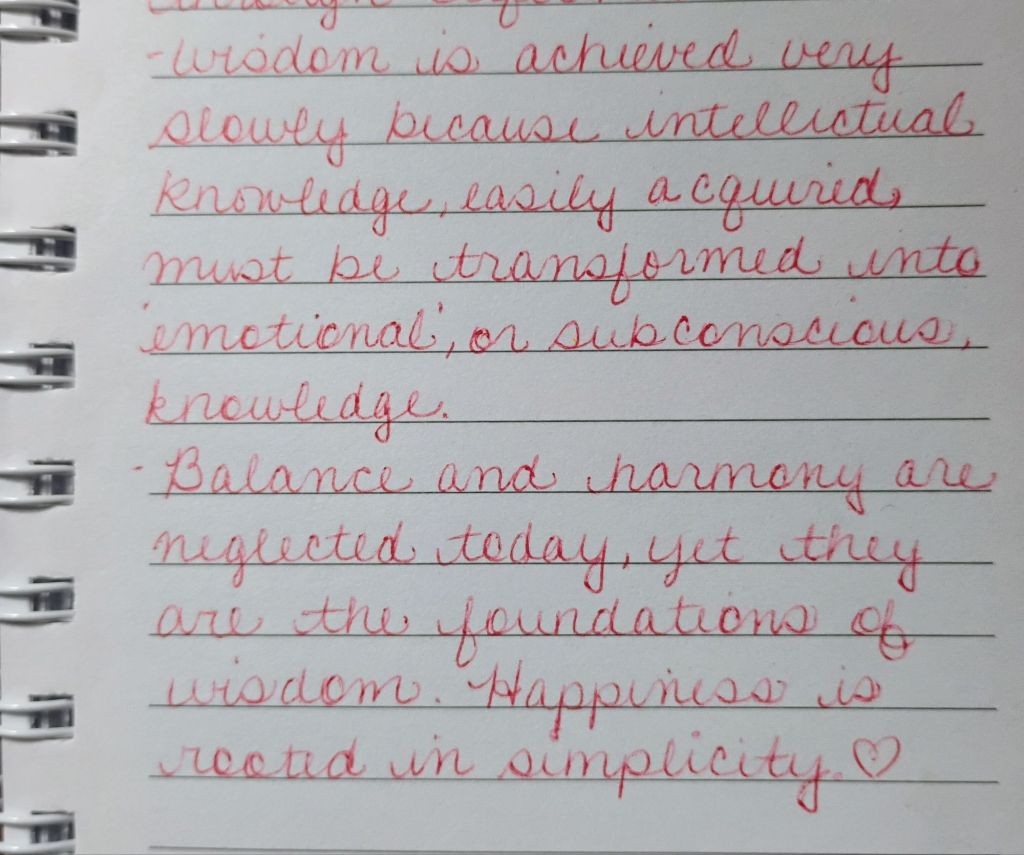 -wisdom is achieved very
slowly because intellectual
knowledge, easily acquired,
must be transformed into
'emotional', or subconscious,
knowledge.
- Balance and harmony are
neglected today, yet they
are the foundations of
wisdom. Happiness is
rooted in simplicity. ♡